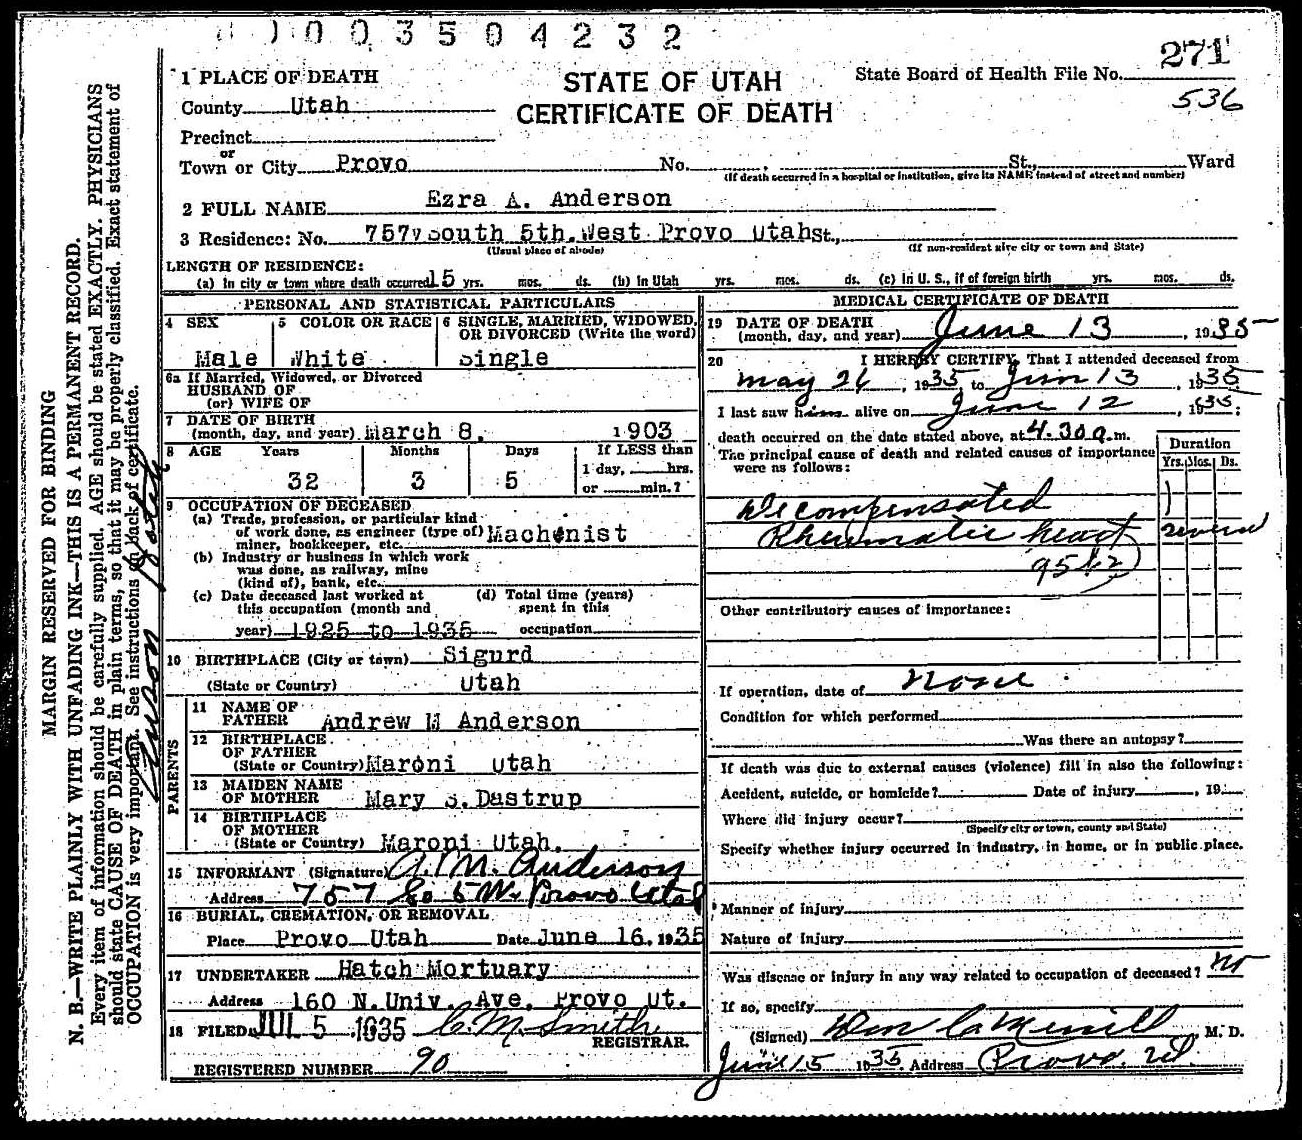 0003504232
271
1 PLACE OF DEATH
STATE OF UTAH
State Board of Health File No.
County Utah
CERTIFICATE OF DEATH
536
Precinct
or
Town or City Provo No. , St., Ward
(If death occurred in a hospital or institution, give its NAME instead of street and number)
2 FULL NAME Ezra A. Anderson
3 Residence: No. 757 South 5th. West Provo Utah St.,
(Usual place of abode) (If non-resident give city or town and State)
LENGTH OF RESIDENCE:
(a) In city or town where death occurred 15 yrs. mos. ds. (b) In Utah yrs. mos. ds. (c) In U. S., if of foreign birth yrs. mos. ds.
PERSONAL AND STATISTICAL PARTICULARS
4 SEX
Male
5 COLOR OR RACE
White
6 SINGLE, MARRIED, WIDOWED,
OR DIVORCED (Write the word)
Single
6a If Married, Widowed, or Divorced
HUSBAND OF
(or) WIFE OF
7 DATE OF BIRTH
(month, day, and year) March 8. 1903
8 AGE Years Months Days If LESS than
32 3 5 1 day, hrs.
or min.?
9 OCCUPATION OF DECEASED
(a) Trade, profession, or particular kind
of work done, as engineer (type of) Machenist
miner, bookkeeper, etc.
(b) Industry or business in which work
was done, as railway, mine
(kind of), bank, etc.
(c) Date deceased last worked at (d) Total time (years)
this occupation (month and spent in this
year) 1925 to 1935 occupation
10 BIRTHPLACE (City or town) Sigurd
(State or Country) Utah
PARENTS
11 NAME OF
FATHER Andrew M Anderson
12 BIRTHPLACE
OF FATHER
(State or Country) Maroni Utah
13 MAIDEN NAME
OF MOTHER Mary S. Dastrup
14 BIRTHPLACE
OF MOTHER
(State or Country) Maroni Utah.
15 INFORMANT (Signature) A. M. Anderson
Address 757 So 5 W. Provo Utah
16 BURIAL, CREMATION, OR REMOVAL
Place Provo Utah Date June 16. 1935
17 UNDERTAKER Hatch Mortuary
Address 160 N. Univ. Ave. Provo Ut.
18 FILED JUL 5 1935 C. M. Smith
REGISTRAR.
REGISTERED NUMBER 90
MEDICAL CERTIFICATE OF DEATH
19 DATE OF DEATH
(month, day, and year) June 13, 1935
20 I HEREBY CERTIFY, That I attended deceased from
May 26, 1935, to Jun 13, 1935
I last saw him alive on June 12, 1935;
death occurred on the date stated above, at 4.30 a. m.
The principal cause of death and related causes of importance
were as follows:
Duration
Yrs. Mos. Ds.
Decompensated
Rheumatic heart several
Other contributory causes of importance:
If operation, date of none
Condition for which performed
Was there an autopsy?
If death was due to external causes (violence) fill in also the following:
Accident, suicide, or homicide? Date of injury , 19
Where did injury occur?
(Specify city or town, county and State)
Specify whether injury occurred in industry, in home, or in public place.
Manner of injury
Nature of injury
Was disease or injury in any way related to occupation of deceased? no
If so, specify
(Signed) Wm C. Merrill, M. D.
June 15 1935. Address Provo, Ut.
MARGIN RESERVED FOR BINDING
N. B.—WRITE PLAINLY WITH UNFADING INK—THIS IS A PERMANENT RECORD.
Every item of information should be carefully supplied. AGE should be stated EXACTLY. PHYSICIANS
should state CAUSE OF DEATH in plain terms, so that it may be properly classified. Exact statement of
OCCUPATION is very important. See instructions on back of certificate.